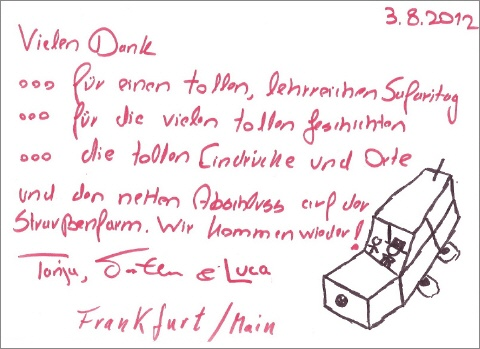 3.8.2012
Vielen Dank
ooo für einen tollen, lehrreichen Safaritag
ooo für die vielen tollen Geschichten
ooo die tollen Eindrücke und Orte
und den netten Abschluss auf der
Straußenfarm. Wir kommen wieder!
Tanja, & Luca
Frankfurt/Main